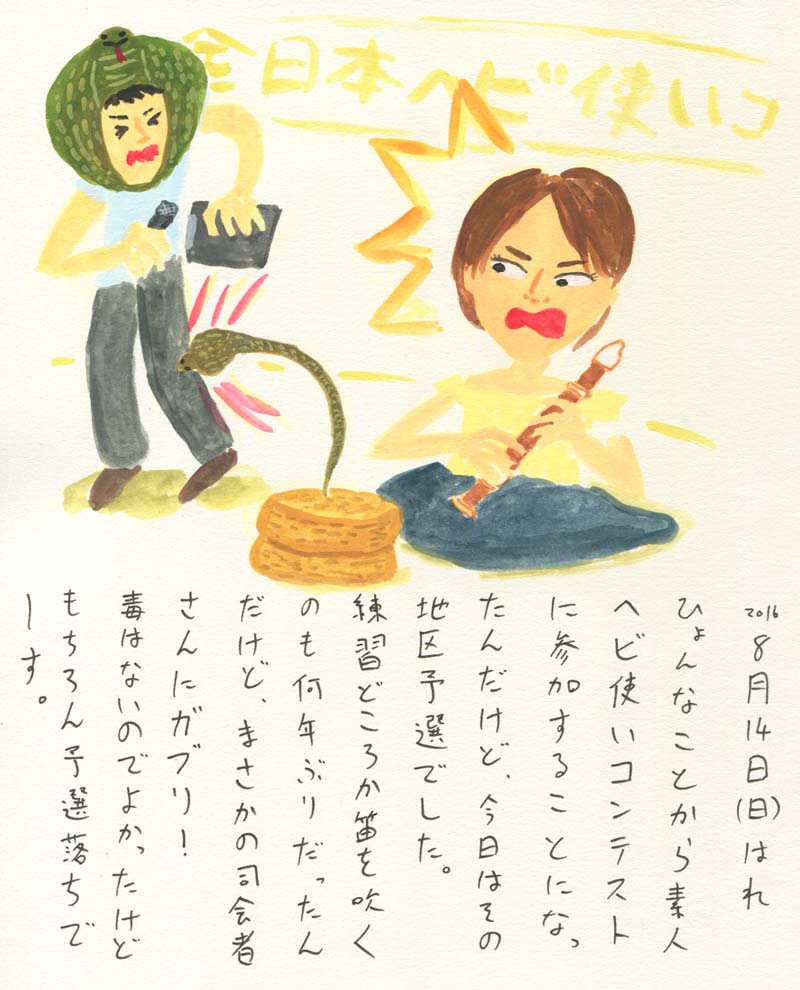 全日本ヘビ使いコ
2016 8月14日(日)はれ
ひょんなことから素人
ヘビ使いコンテスト
に参加することになっ
たんだけど、今日はその
地区予選でした。
練習どころか笛を吹く
のも何年ぶりだったん
だけど、まさかの司会者
さんにガブリ!
毒はないのでよかったけど
もちろん予選落ちで
ーす。